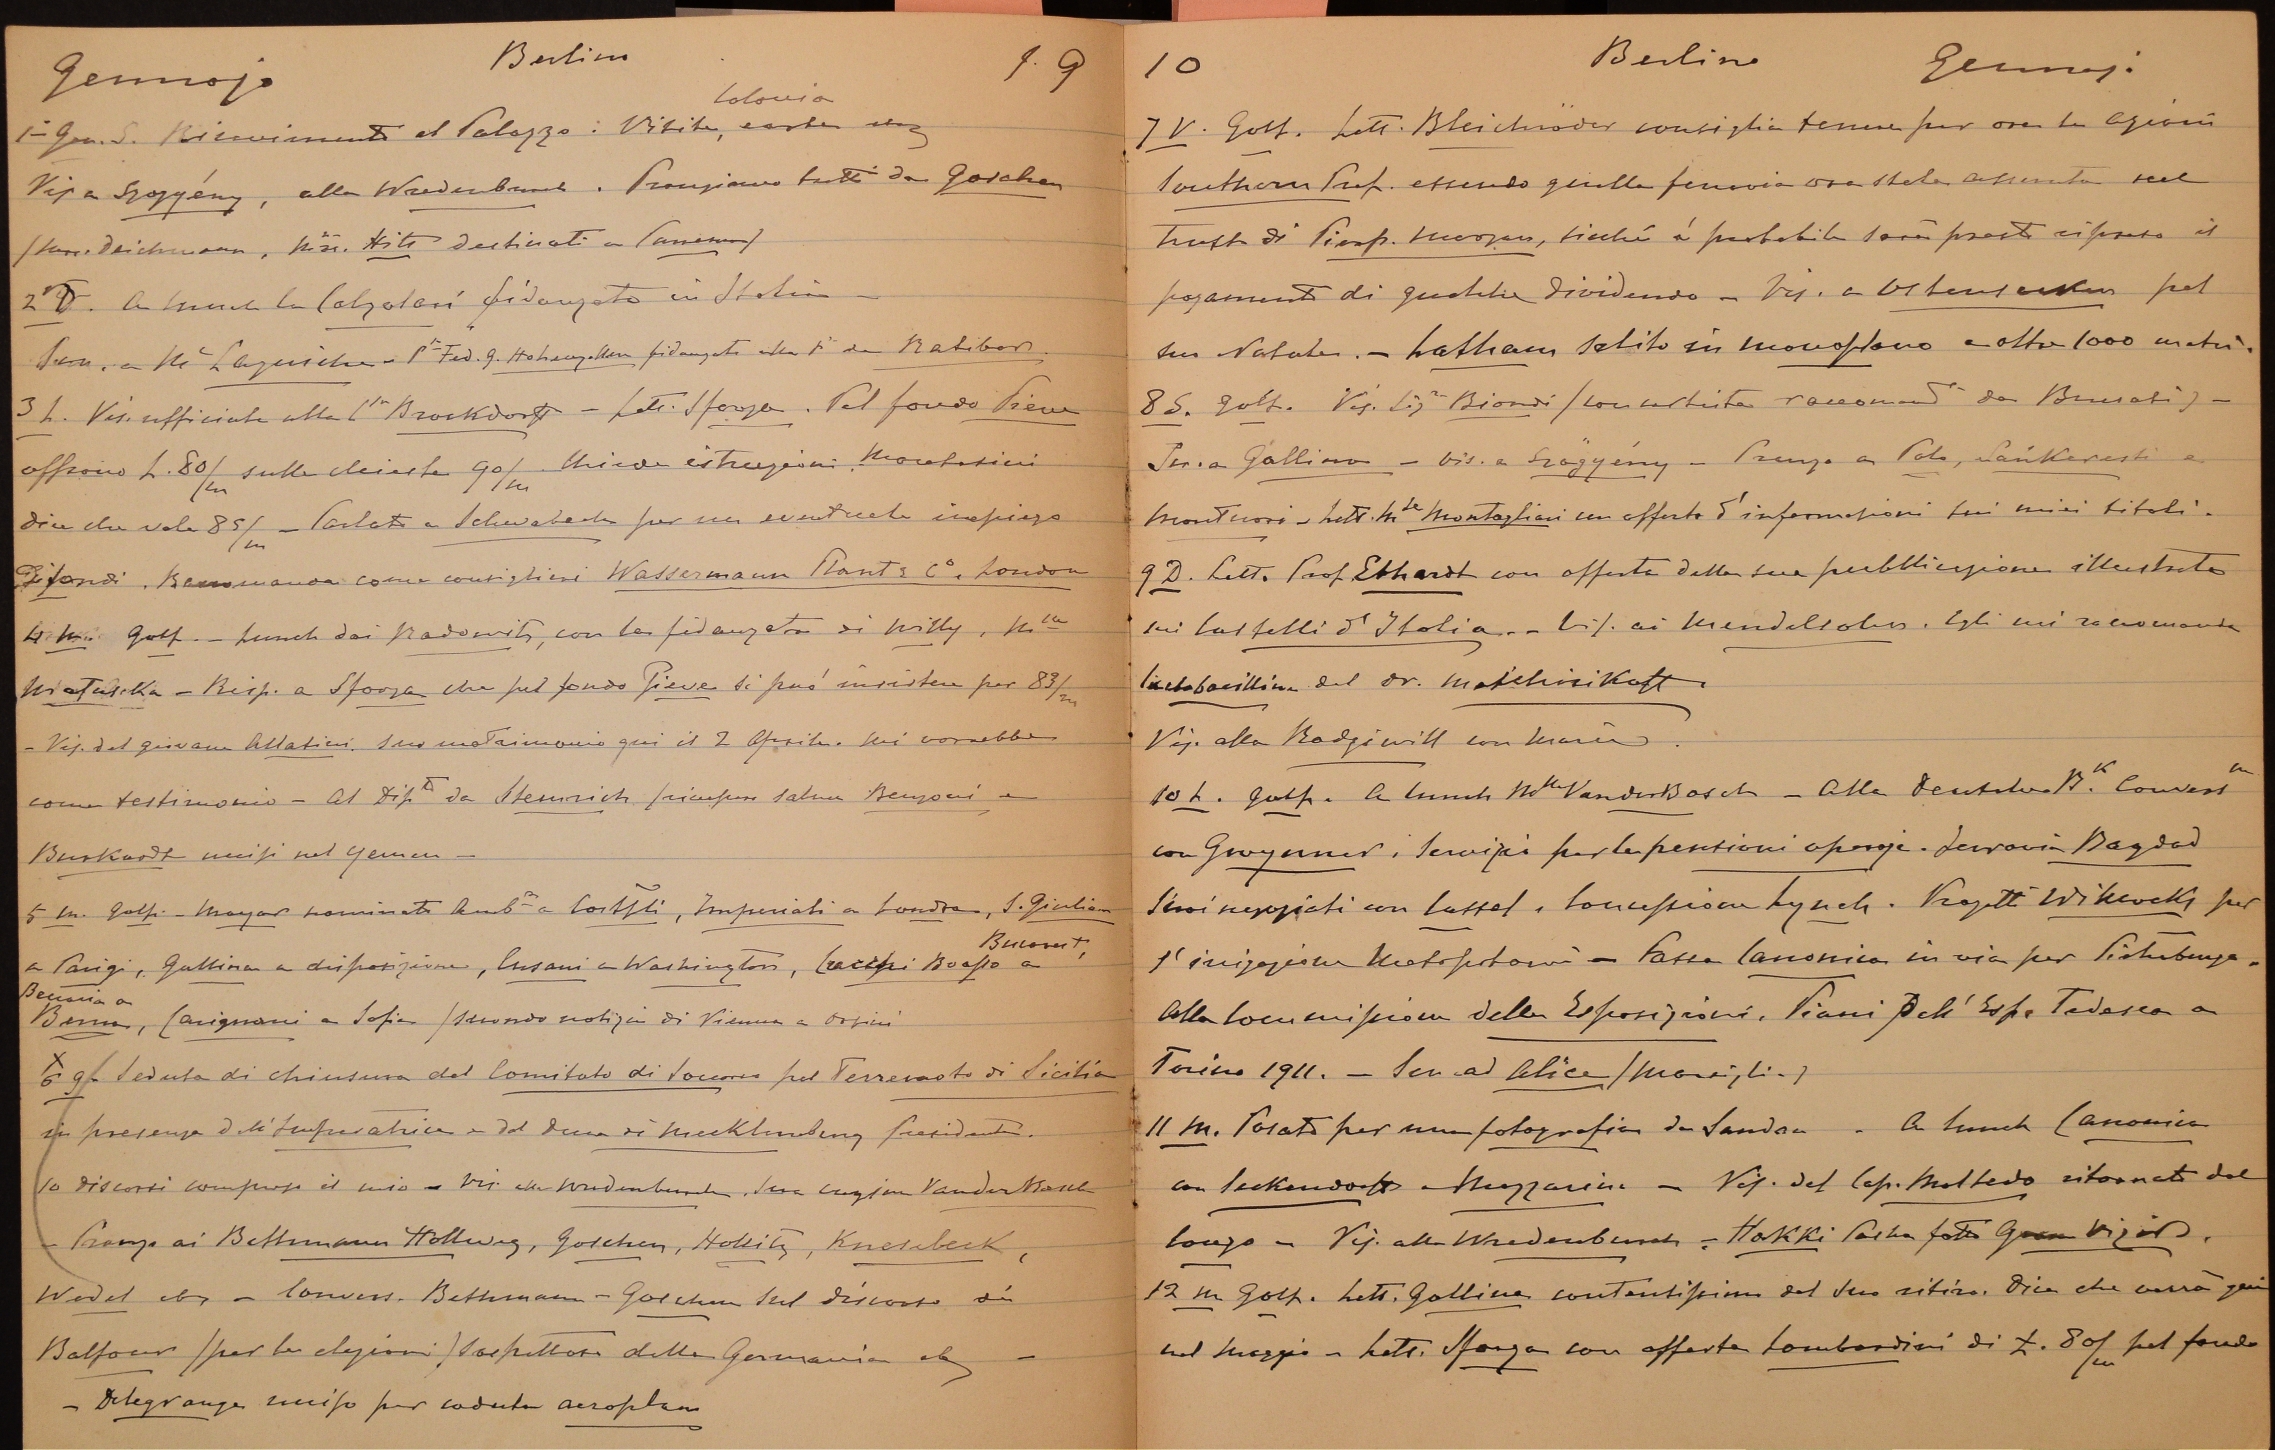 Gennajo Berlino f. 9
Colonia
1° Gen. S. Ricevimento al Palazzo: Visite, carte etc
Vis. a Szögyény, alla Wredenbruch. Pranziamo tutti da Goschen
/ Deichmann, Hitt destinati a Panama/
2 D. A lunch la Calzolari fidanzata in Italia —
a M. Laguiche - Fed. G. Hohenzollern fidanzato alla da Ratibor.
3 L. Vis. ufficiale alla C.ssa Brockdorff - Lett. Sforza. Pel fondo Pieve
offrono L. 80/m sulle chieste 90/m. Chiede istruzioni. Montesini
dice che vale 85/m - Parlato a Schwabach per un eventuale impiego
di fondi. Raccomanda come consiglieri Wassermann Plant & C°. London
4 M. Golf. - Lunch dai Radowitz, con la fidanzata di Willy, M.lle
Matuschka - Risp. a Sforza che pel fondo Pieve si può insistere per 83/m
- Vis. del giovane Allatini. Suo matrimonio qui il 2 Aprile. Mi vorrebbe
come testimonio - Al Dip.to da Stemrich / salme Benzoni e
Burkardt uccisi nel Yemen —
5 M. Golf. - Mayor nominato Amb.re a Cost.pli, Imperiali a Londra, S. Giuliano
Bucarest,
a Parigi, Gallina a disposizione, Cusani a Washington, Beccaria a
Berna, Carignani a Sofia / secondo notizie di Vienna a Orsini
6 G. Seduta di chiusura del Comitato di Soccorso pel Terremoto di Sicilia
in presenza dell'Imperatrice e del Duca di Mecklenburg Presidente.
10 discorsi compreso il mio - Vis. alla Wredenbruch. Sua cugina VanderBosch
- Pranzo ai Bethmann Hollweg, Goschen, Knesebeck,
Wedel etc - Convers. Bethmann - Goschen sul discorso di
Balfour / per le elezioni / Sospettoso della Germania etc —
- Delagrange ucciso per caduta aeroplano
10 Berlino Gennajo
7 V. Golf. Lett. Bleichröder consiglia tenere per ora le azioni
Southern Pref. essendo quella ferrovia ora stata assunta nel
trust di Pierp. Morgan, sicché è probabile sarà presto ripreso il
pagamento di qualche dividendo - Vis. a Ostensacken pel
suo Natale. - Latham salito in monoplano a oltre 1000 metri.
8 S. Golf. Vis. Sig.ra Biondi / concertista raccomand.ta da /-
a Gallina - Vis. a Szögyény - Pranzo a Pola, e
Montuori - Lett. M.se Montagliari con offerta d'informazioni sui miei titoli.
9 D. Lett. Prof. Ebhardt con offerta della sua pubblicazione illustrata
sui Castelli d'Italia. - Vis. ai Mendelsohn. Egli mi raccomanda
lactobacillina del dr. Metchnikoff.
Vis. alla Radziwill con Maria.
10 L. Golf. A lunch M.lle VanderBosch - Alla Deutsche B.k Convers.ne
con Gwynner: Servizi per le pensioni operaje. Ferrovia Bagdad
Suoi negoziati con Cassel. Concessione Lynch. Progetti Wilcocks per
l'irrigazione Mesopotamia - Passa Canonica in via per Pietroburgo.
Alla Commissione delle Esposizioni. Piani dell'Esp. Tedesca a
Torino 1911. - ad Alice / Marsiglia /
11 M. Posato per una fotografia da Sandau - A lunch Canonica
con Seckendorff e Mazzarini - Vis. del Cap. Moltedo ritornato dal
Congo - Vis. alla Wredenbruch - Hakki Pasha fatto Gran Vizir.
12 M Golf. Lett. Gallina contentissimo del suo ritiro. Dice che verrà qui
nel Maggio - Lett. Sforza con offerta Lombardini di L. 80/m pel fondo